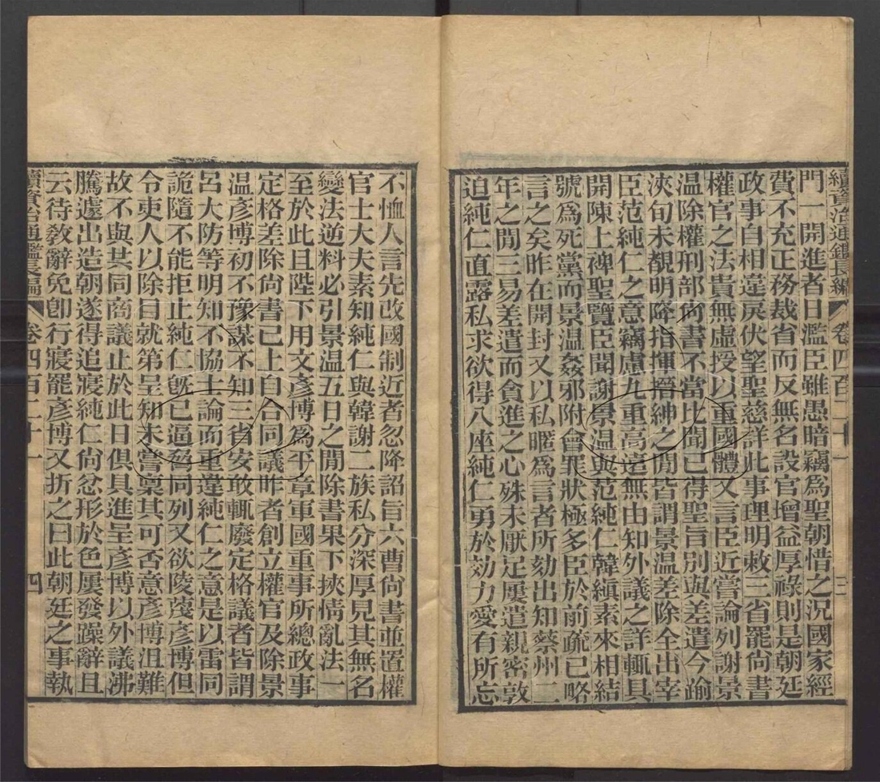 續資治通鑑長編 卷四百二十一 三
門一開進者日濫臣雖愚暗竊為聖朝惜之況國家經
費不充正務裁省而反無名設官增益厚祿則是朝廷
政事自相違戾伏望聖慈詳此事理明敕三省罷尚書
權官之法貴無虛授以重國體又言臣近嘗論列謝景
温除權刑部尚書不當比聞已得聖旨別與差遣今踰
浹旬未覩明降指揮搢紳之閒皆謂景温差除全出宰
臣范純仁之意竊慮九重高遠無由知外議之詳輒具
開陳上裨聖覽臣聞謝景温與范純仁韓縝素來相結
號為死黨而景温姦邪附會罪狀極多臣於前疏已略
言之矣昨在開封又以私暱為言者所劾出知蔡州二
年之閒三易差遣而貪進之心殊未厭足屢遣親密敦
迫純仁直露私求欲得八座純仁勇於効力愛有所忘
不恤人言先改國制近者忽降詔旨六曹尚書並置權
官士大夫素知純仁與韓謝二族私分深厚見其無名
變法逆料必引景温五日之閒除書果下挾情亂法一
至於此且陛下用文彥博為平章軍國重事所總政事
定格差除尚書已上自合同議昨者創立權官及除景
温彥博初不豫謀不知三省安敢輒廢定格議者皆謂
呂大防等明知不協士論而重違純仁之意是以雷同
詭隨不能拒止純仁旣已逼脅同列又欲陵蔑彥博但
令吏人以除目就第呈知未嘗稟其可否意彥博沮難
故不與其同商議止於此日俱具進呈彥博以外議沸
騰遽出造朝遂得追寢純仁尚忿形於色屢發躁辭且
云待敎辭免卽行寢罷彥博又折之曰此朝廷之事執
續資治通鑑長編 卷四百二十一 四